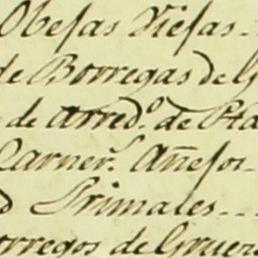 Obejas Viejas
de Borregas de
de arred.º de
Carner.s Añejos
Primales
de